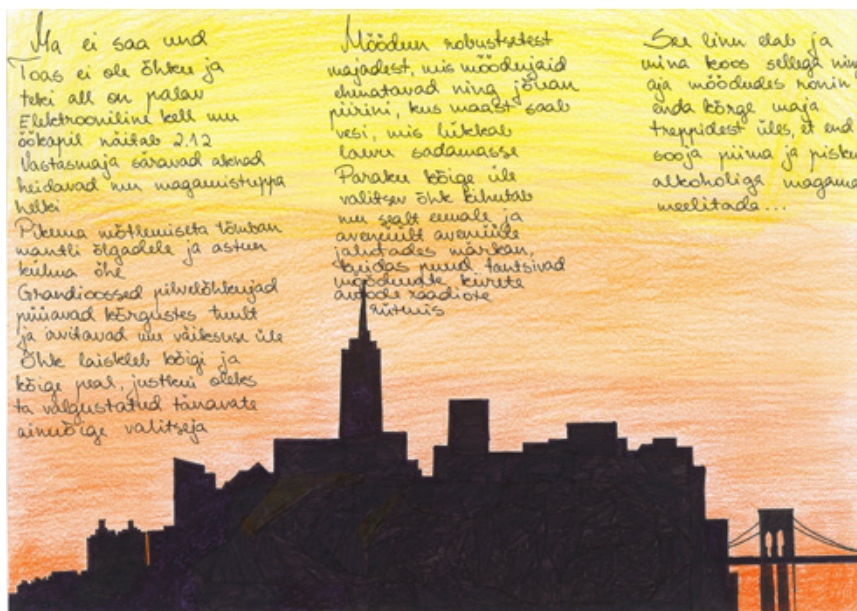 Ma ei saa und
Toas ei ole õhku ja
teki all on palav
Elektrooniline kell mu
öökapil näitab 2.12
Vastasmaja säravad aknad
heidavad mu magamistuppa
helki
Pikema mõtlemiseta tõmban
mantli õlgadele ja astun
külma öhe
Grandioossed pilvelõhkujad
püüavad kõrgustes tuult
ja irvitavad mu väiksuse üle
Õhk laiskleb kõigi ja
kõige peal, justkui oleks
ta valgustatud tänavate
ainuõige valitseja
Möödun robustsetest
majadest, mis möödujaid
ehmatavad ning jõuan
piirini, kus maast saab
vesi, mis lükkab
laevu sadamasse
Paraku kõige üle
valitsev õhk kihutab
mu sealt eemale ja
avenüült avenüüle
jalutades märkan,
kuidas puud tantsivad
mööduvate kiirete
autode raadiote
rütmis
See linn elab ja
mina koos sellega ning
aja möödudes ronin
enda kõrge maja
treppidest üles, et end
sooja piima ja pisku
alkoholiga magama
meelitada...